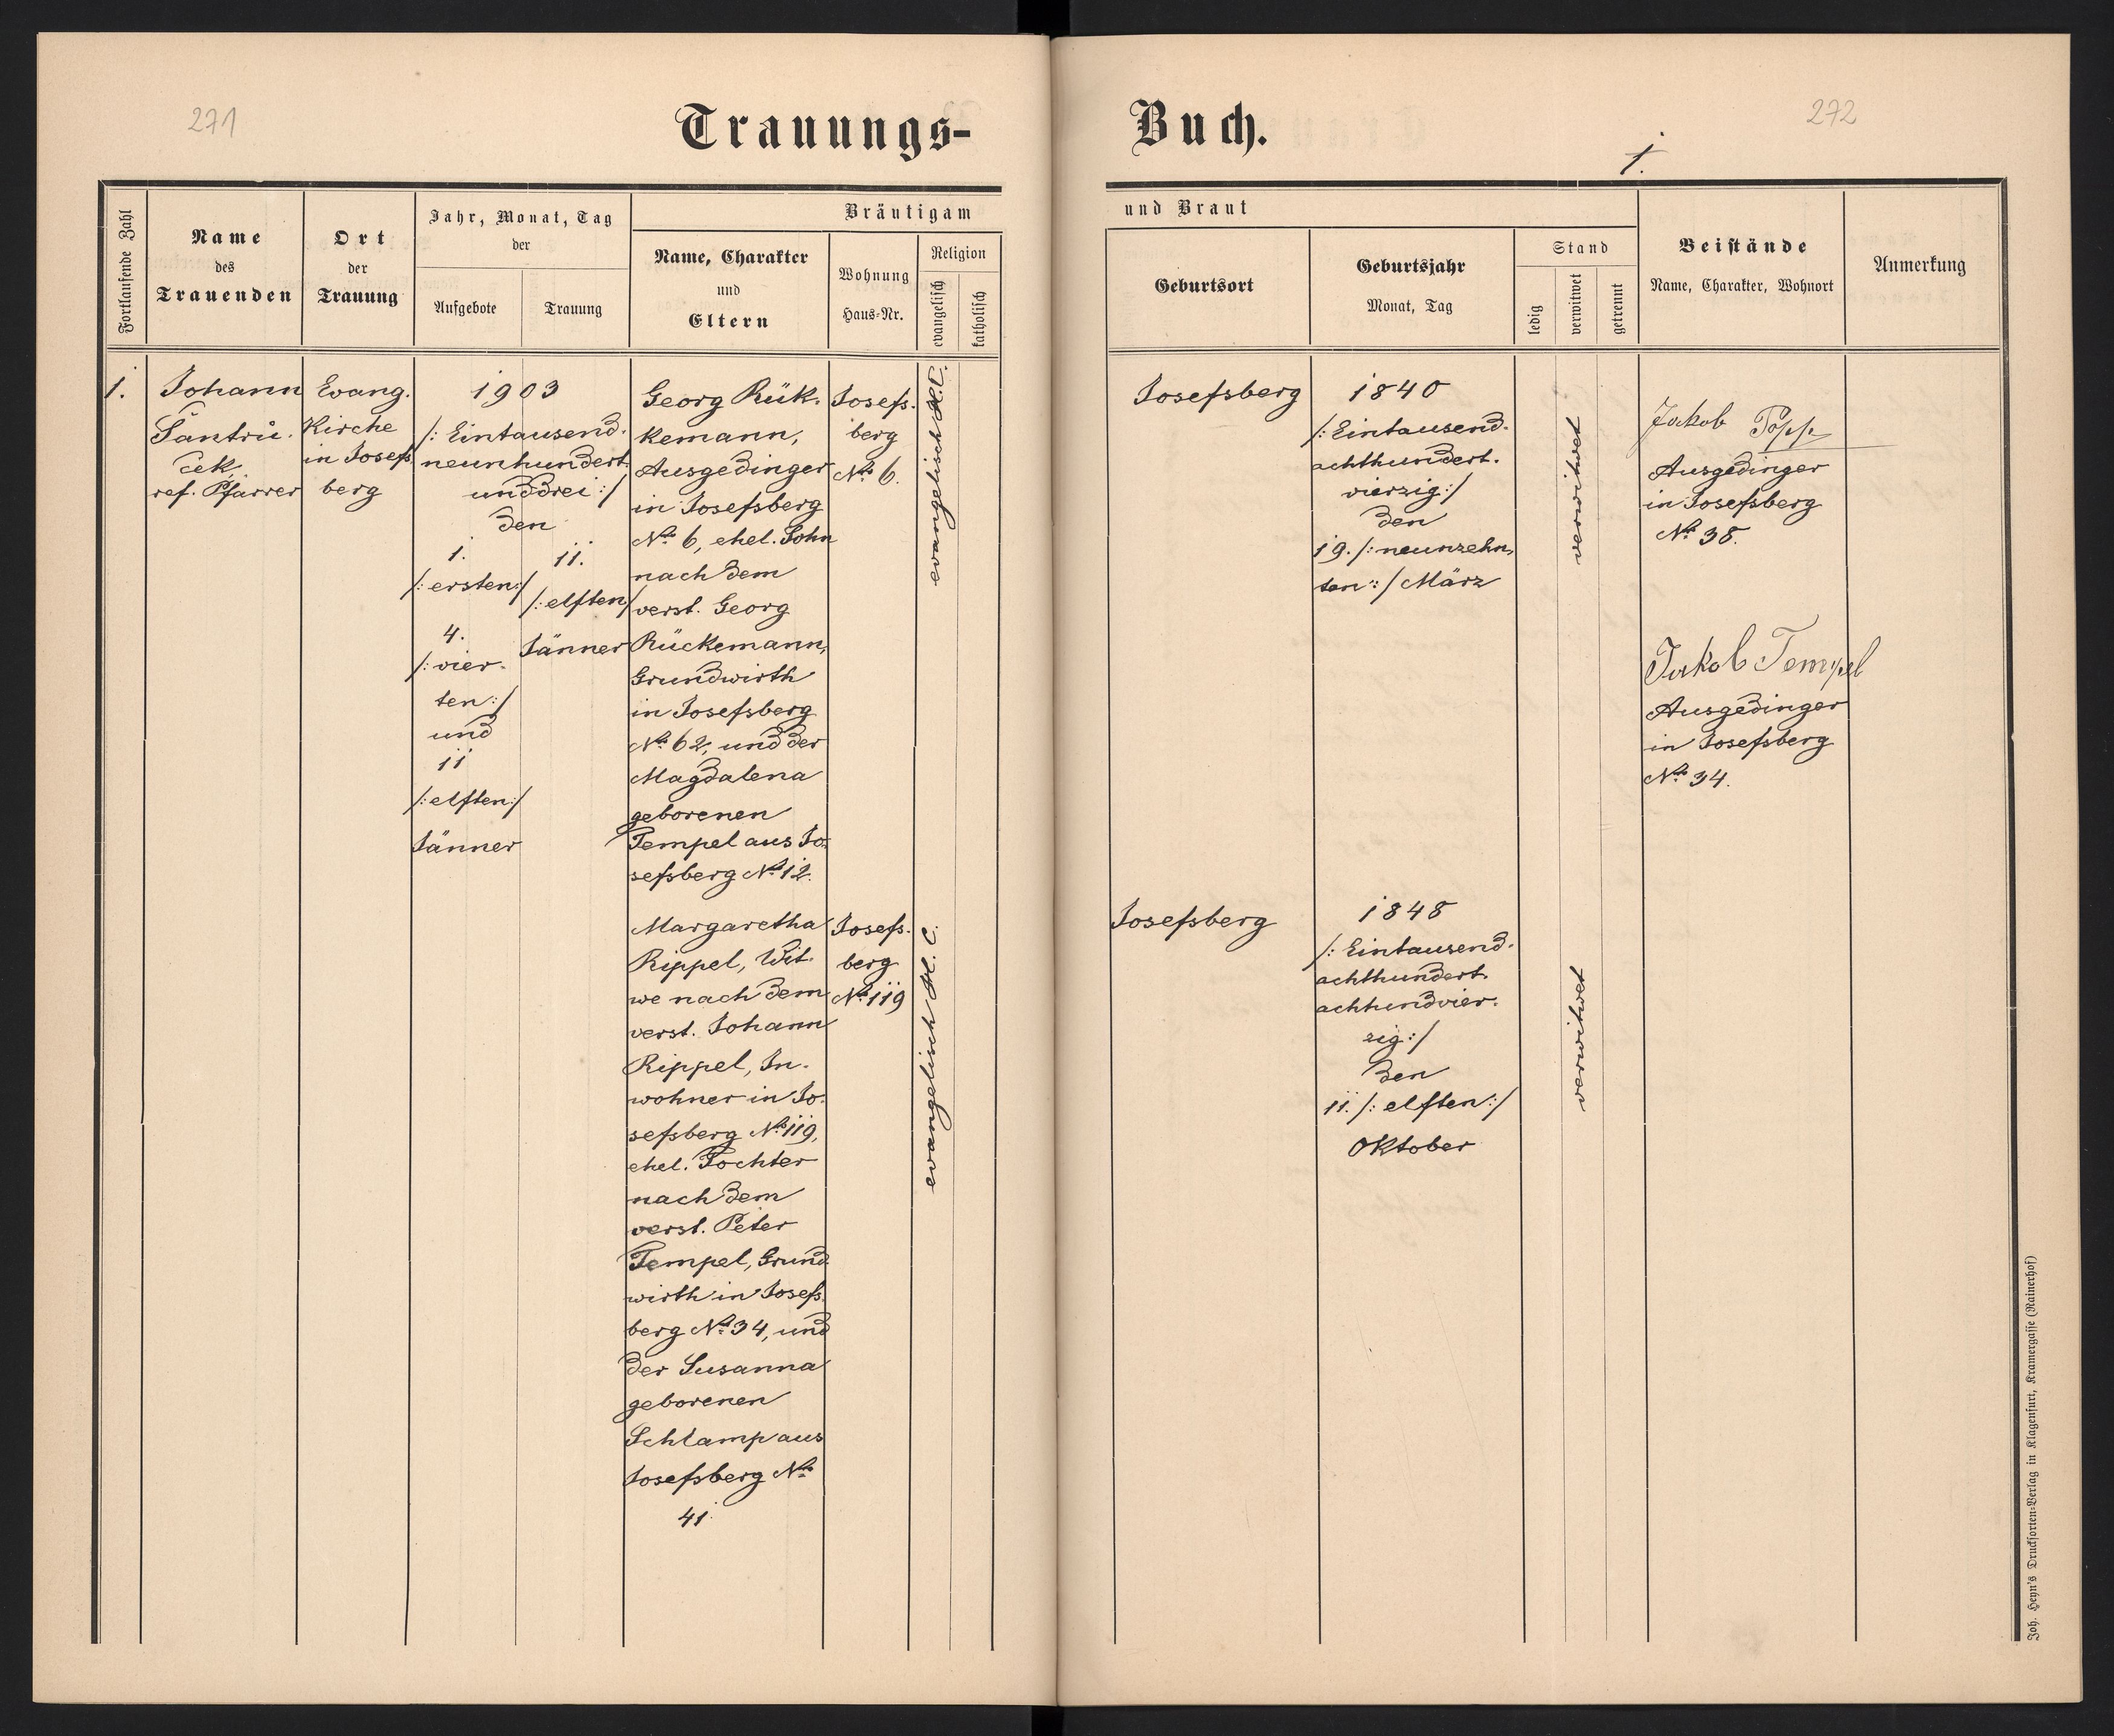 271
272
Trauungs-
Buch.
1.
Fortlaufende Zahl
Name
des
Trauenden
Ort
der
Trauung
Jahr, Monat, Tag
der
Aufgebote
Trauung
Bräutigam
Name, Charakter
und
Eltern
Wohnung
Haus=Nr.
Religion
evangelisch
katholisch
und Braut
Geburtsort
Geburtsjahr
Monat, Tag
Stand
ledig
verwitwet
getrennt
Beistände
Name, Charakter, Wohnort
Anmerkung
1.
Johann
Šantrů-
ček
ref. Pfarrer
Evang.
Kirche
in Josefs
berg
1903
/: Eintausend-
neunhundert
unddrei :/
den
1.
/: ersten :/
4.
/: vier-
ten :/
und
11
/: elften :/
Jänner
11.
/: elften :/
Jänner
Georg Rük-
kemann,
Ausgedinger
in Josefsberg
No. 6, ehel. Sohn
nach dem
verst. Georg
Rückemann,
Grundwirth
in Josefsberg
No. 62, und der
Magdalena
geborenen
Tempel aus Jo-
sefsberg No. 12.
Josefs-
berg
No. 6.
evangelisch H.C.
Josefsberg
1840
/: Eintausend-
achthundert-
vierzig :/
den
19. /: neunzehn-
ten :/ März
verwitwet
Jakob Popp
Ausgedinger
in Josefsberg
No. 38.
Jakob Tempel
Ausgedinger
in Josefsberg
No. 34.
Margaretha
Rippel, Wit-
we nach dem
verst. Johann
Rippel, In-
wohner in Jo-
sefsberg No. 119,
ehel. Tochter
nach dem
verst. Peter
Tempel, Grund
wirth in Josefs
berg No. 34, und
der Susanna
geborenen
Schlamp aus
Josefsberg No.
41
Josefs-
berg
No. 119
evangelisch H.C.
Josefsberg
1848
/: Eintausend-
achthundert-
achtundvier-
zig :/
den
11. /: elften :/
Oktober
verwitwet
Joh. Heyn's Drucksorten=Verlag in Klagenfurt, Kramergasse (Rainerhof)